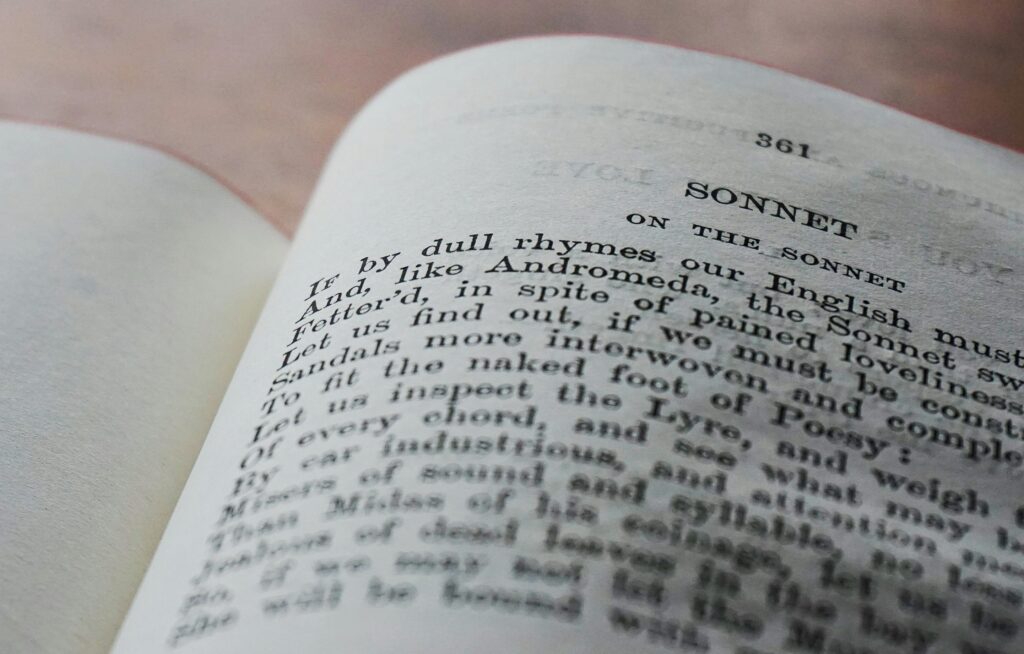 361
SONNET
ON THE SONNET
IF by dull rhymes our English must
And, like Andromeda, the Sonnet sw
Fetter'd, in spite of pained loveliness
Let us find out, if we must be constr
Sandals more interwoven and comple
To fit the naked foot of Poesy :
Let us inspect the Lyre, and weigh t
Of every chord, and see what may b
By ear industrious, and attention mee
Misers of sound and syllable, no less
Than Midas of his coinage, let us be
Jealous of dead leaves in the bay
So, if we may not let the Mu
She will be bound with